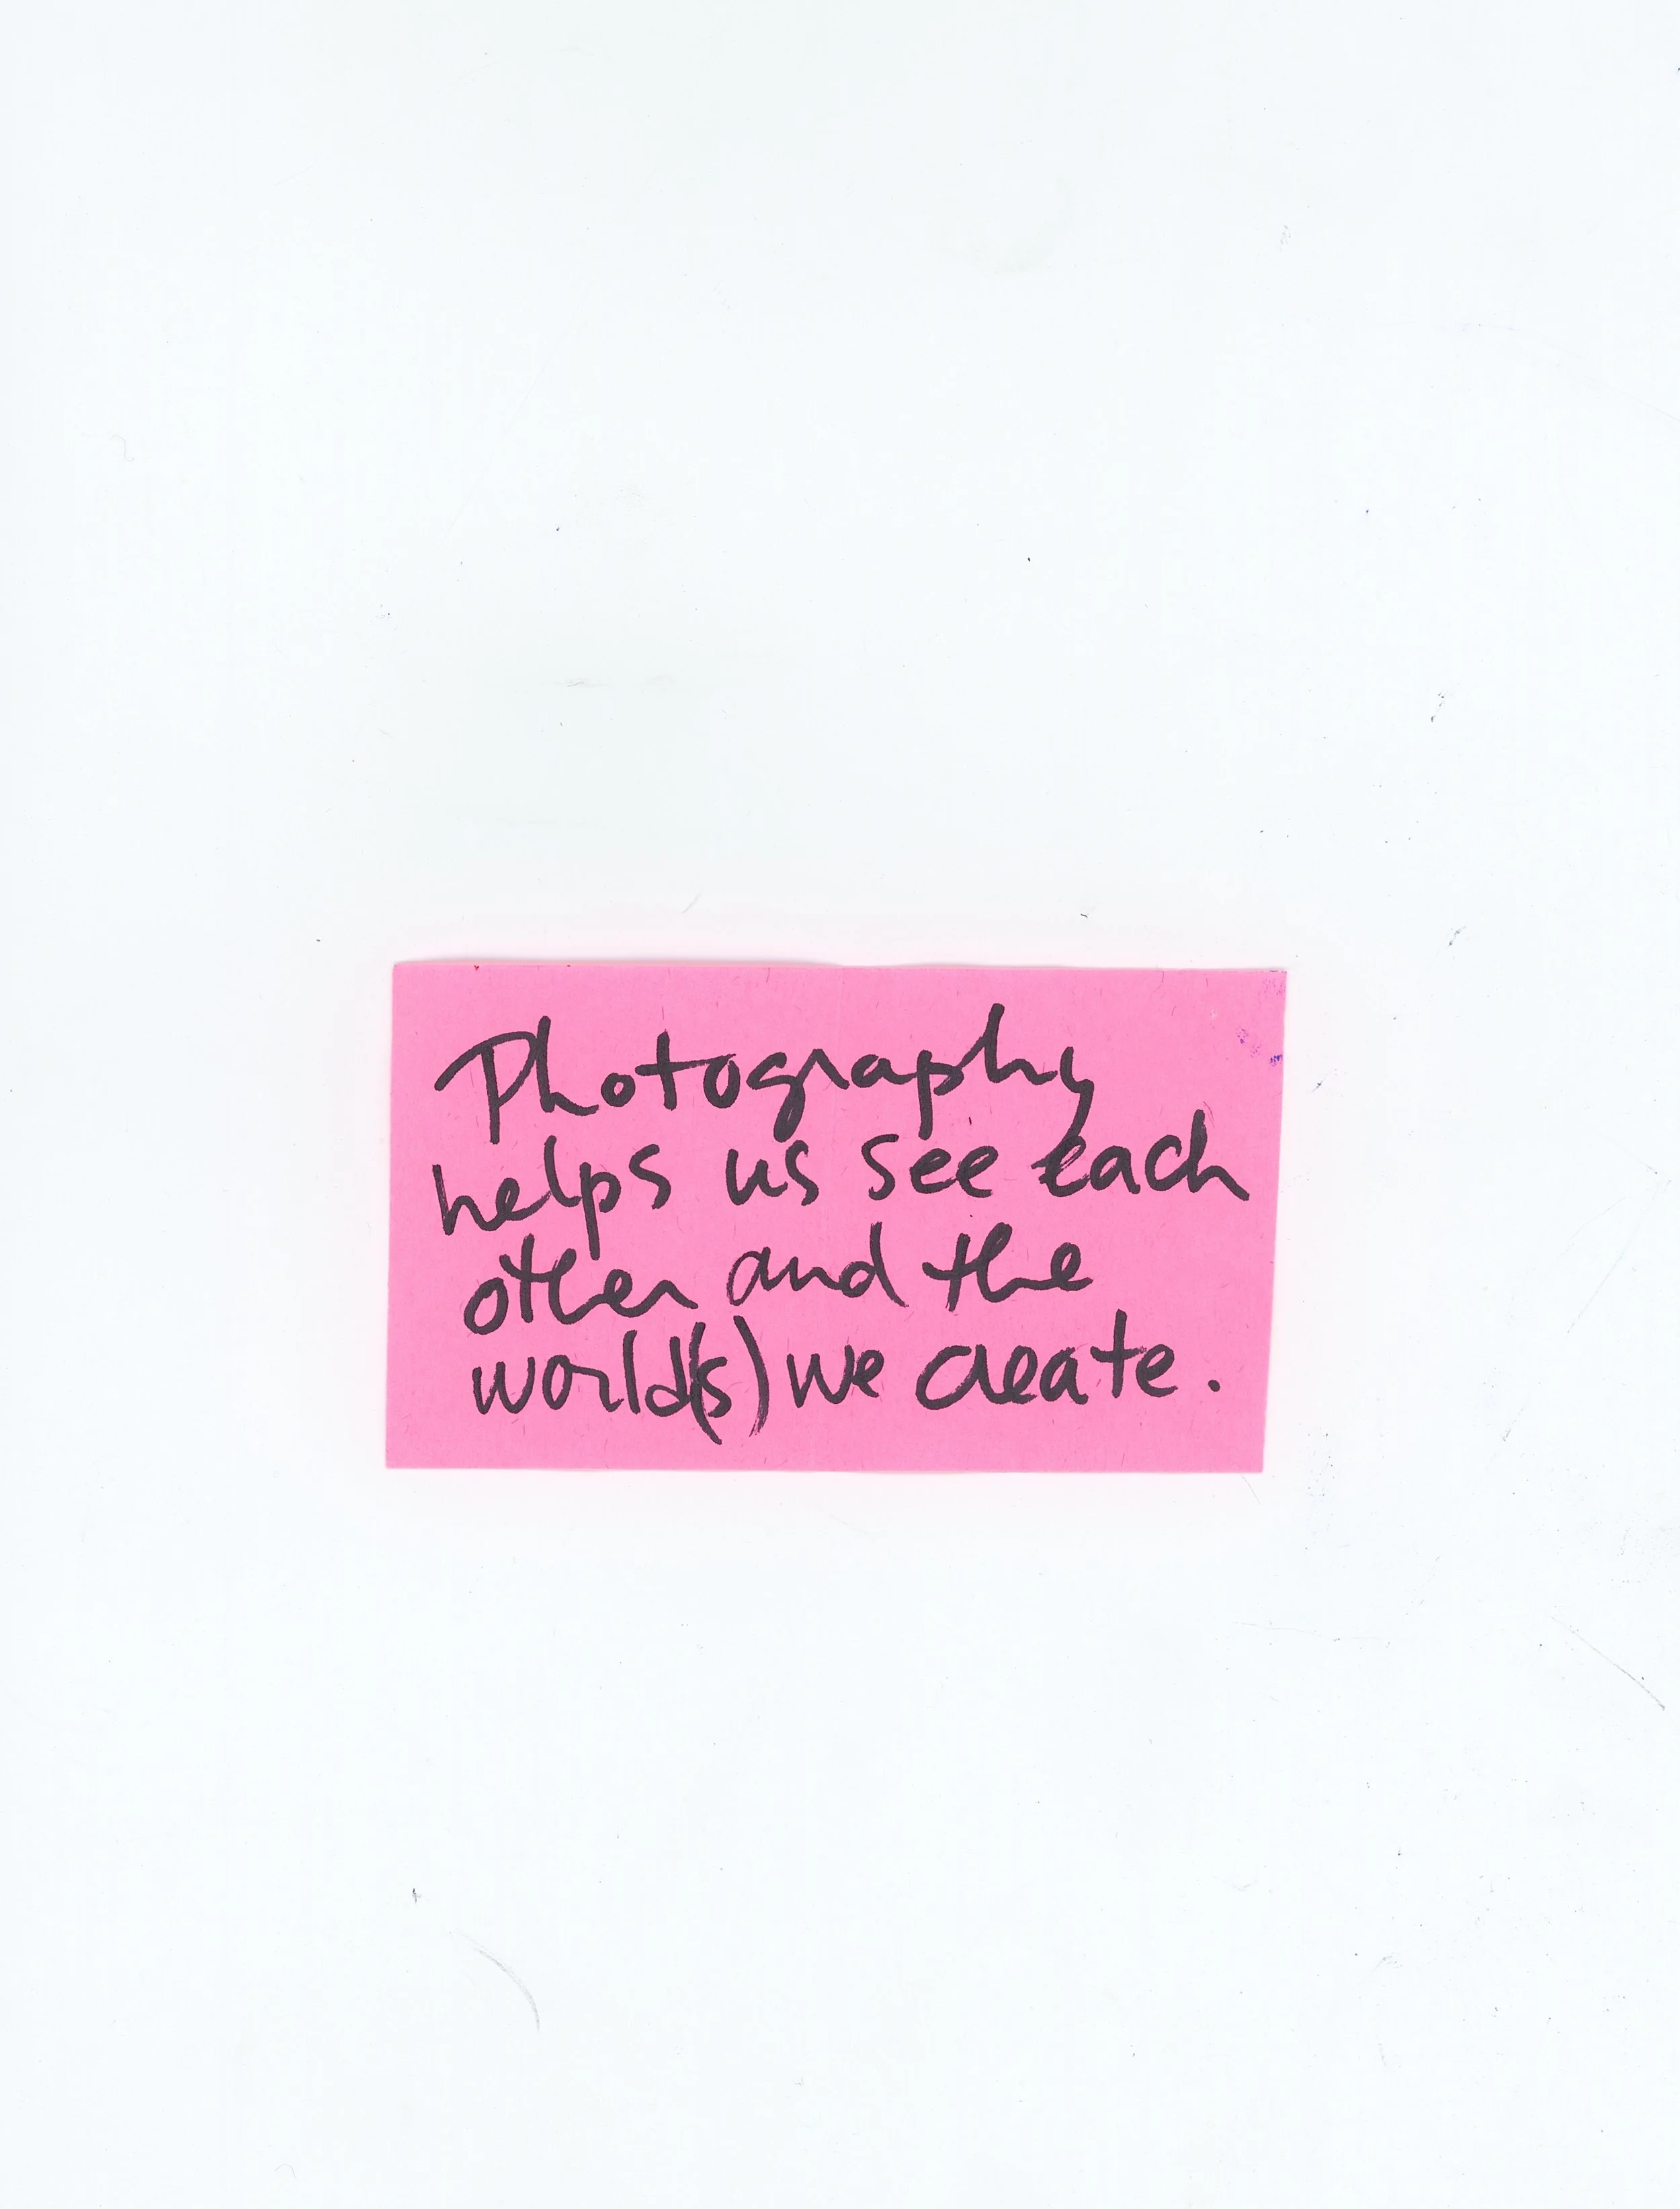 Photography
helps us see each
other and the
world(s) we create.